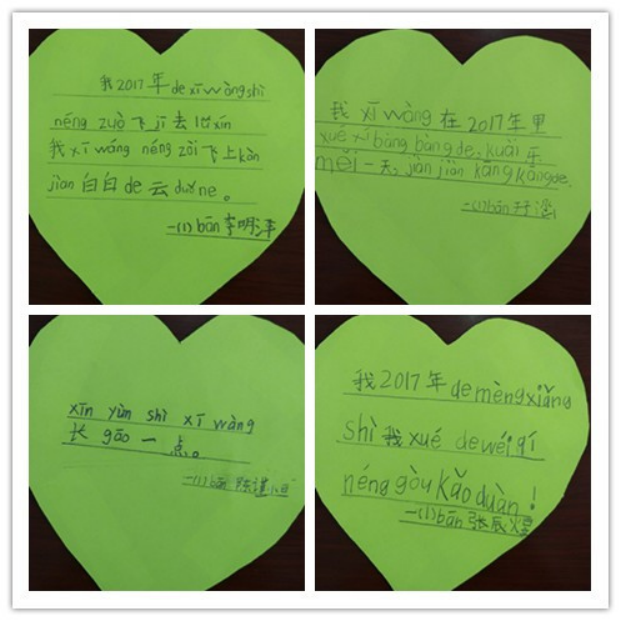 我2017年de xī wàng shì
néng zuò飞jī去lǚ xín
我xī wáng néng zài飞上kàn
jiàn白白de云duǒ ne。
一(1)bān李明泽
我xī wàng在2017年里
xué xí bàng bàng de、kuài乐
měi一天，jiàn jiàn kāng kāng de。
一(1)bān于涵
xīn yùn shì xī wàng
长gāo一点。
一(1)bān陈谨
我2017年de mèng xiǎng
shì我xué de wéi qí
néng gòu kǎo duàn！
一(1)bān张辰煜